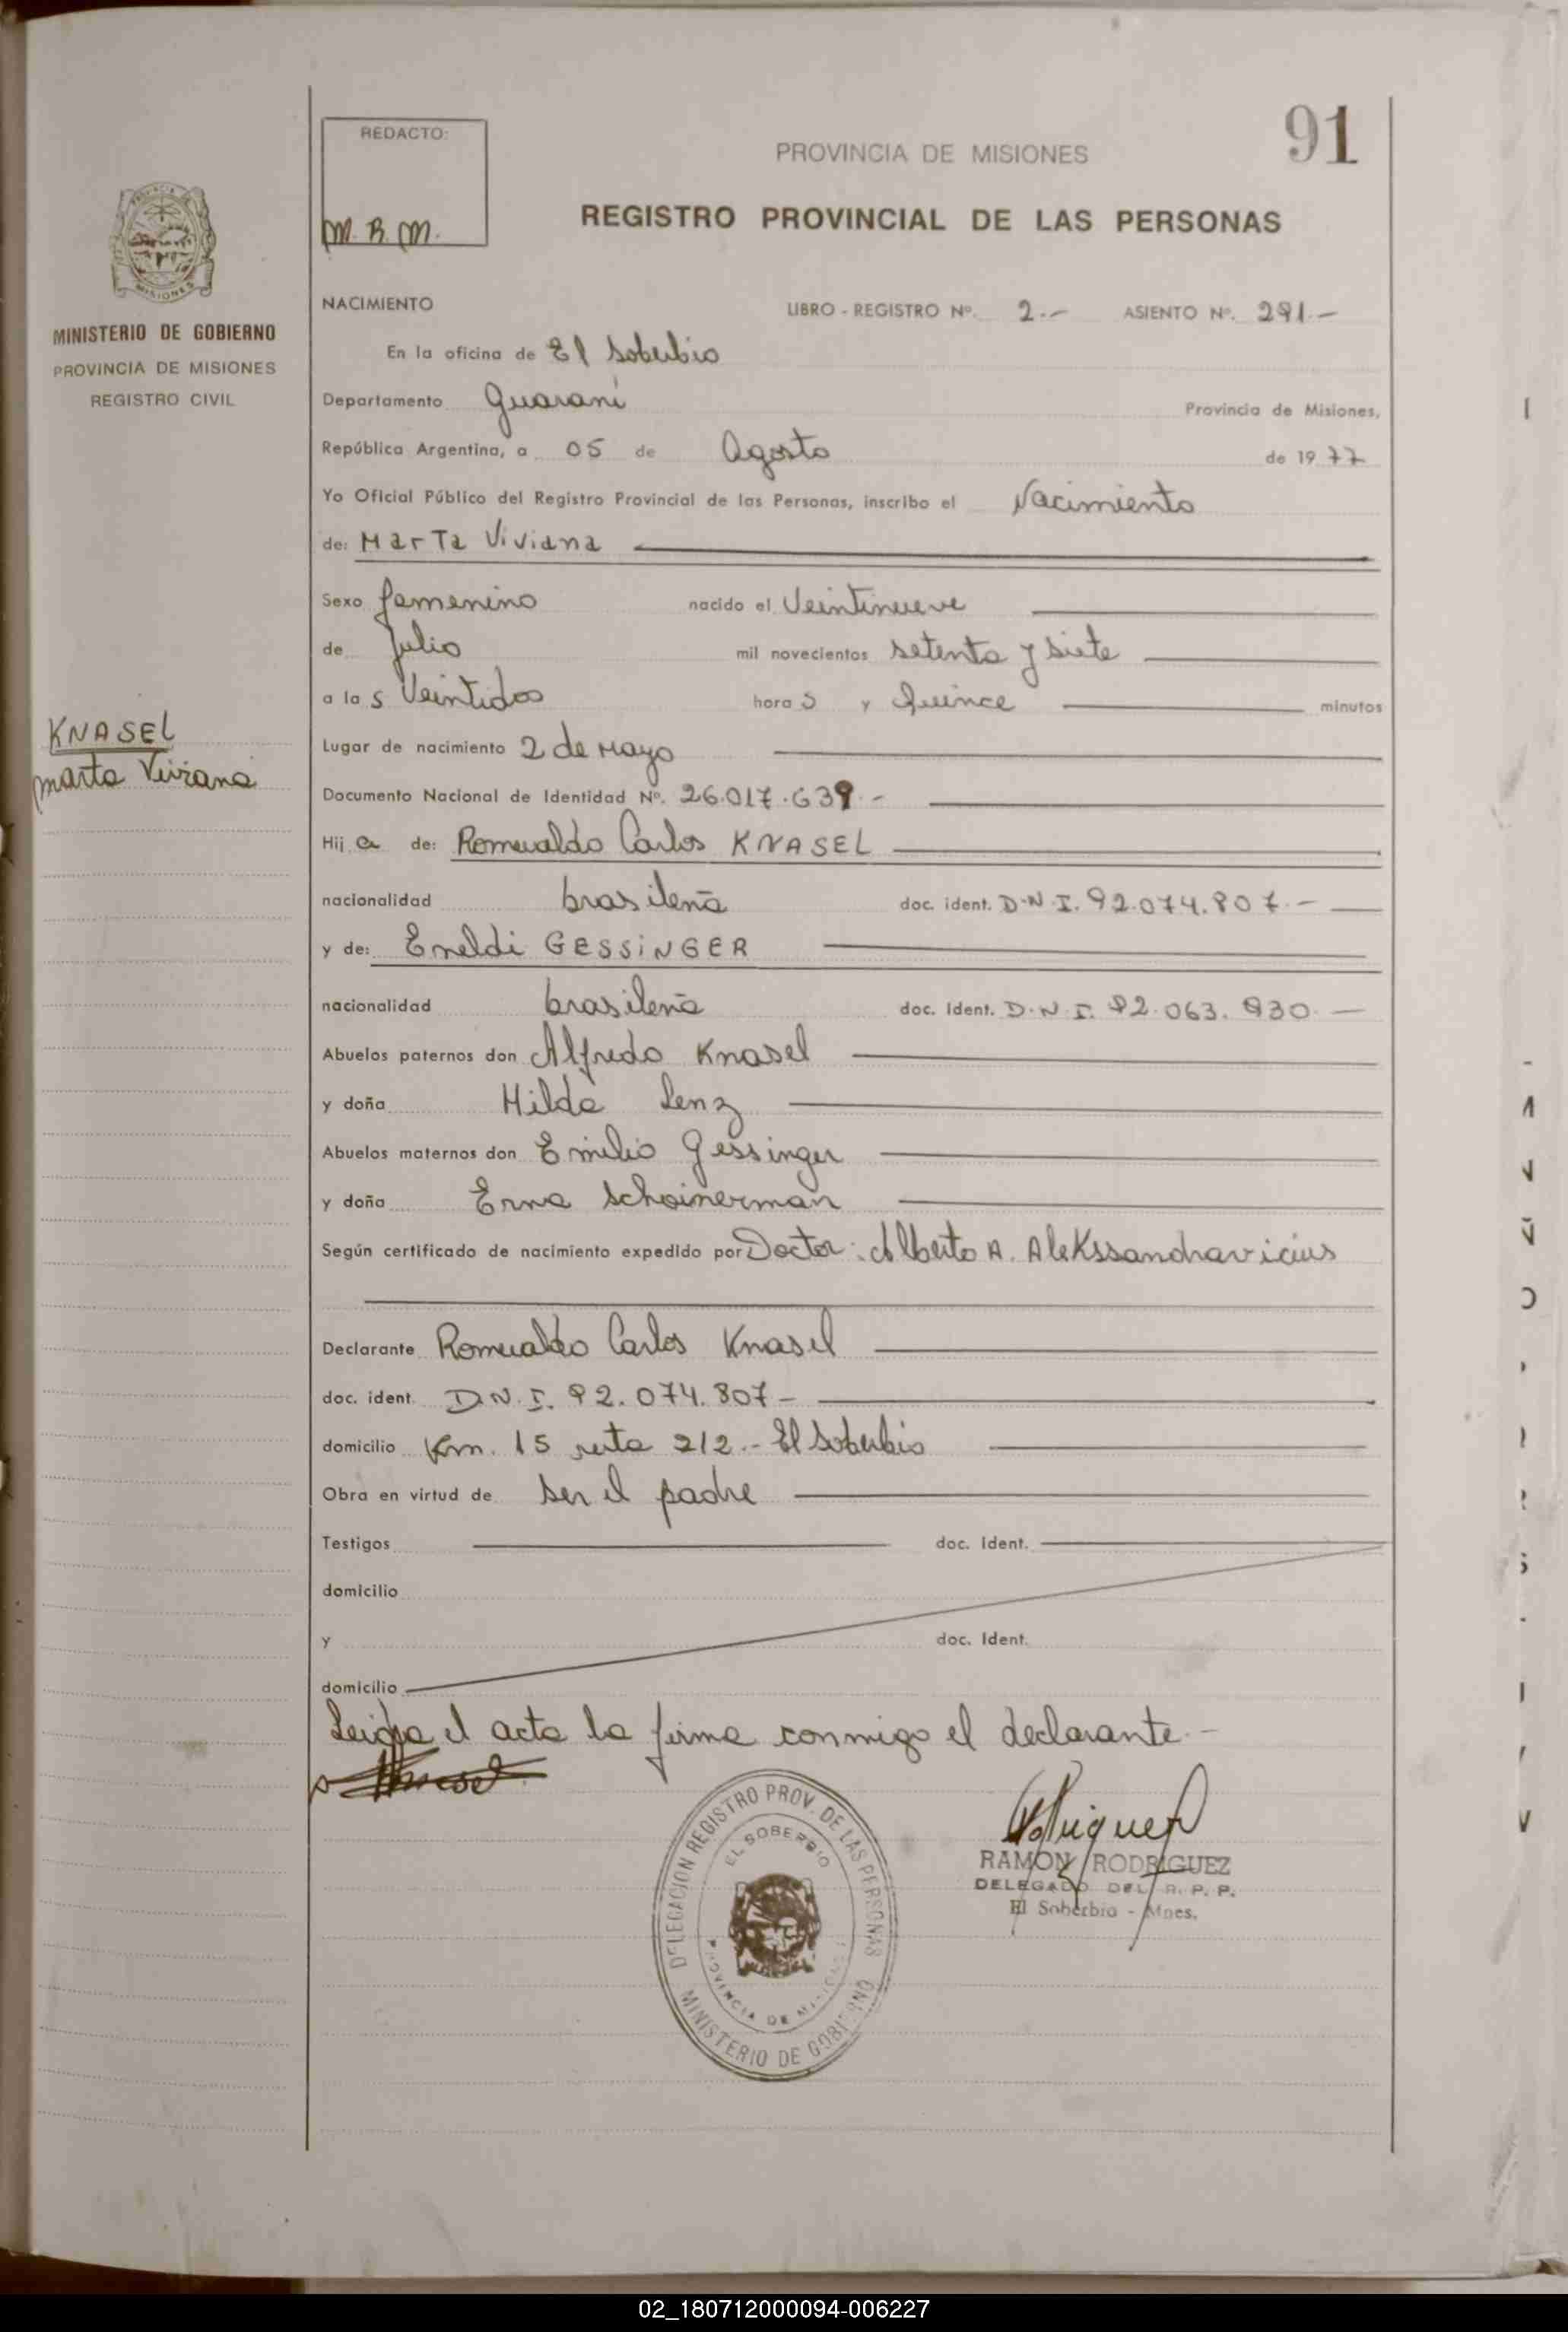 91
REDACTO:
M. R. M.
PROVINCIA DE MISIONES
REGISTRO PROVINCIAL DE LAS PERSONAS
MISIONES
MINISTERIO DE GOBIERNO
PROVINCIA DE MISIONES
REGISTRO CIVIL
KNASEL
Marta Viviana
NACIMIENTO LIBRO - REGISTRO Nº. 2.- ASIENTO Nº. 291.-
En la oficina de El Soberbio
Departamento Guaraní Provincia de Misiones,
República Argentina, a 05 de Agosto de 1977
Yo Oficial Público del Registro Provincial de las Personas, inscribo el Nacimiento
de: Marta Viviana
Sexo femenino nacido el Veintinueve
de Julio mil novecientos setenta y siete
a las Veintidos horas y Quince minutos
Lugar de nacimiento 2 de Mayo
Documento Nacional de Identidad Nº. 26.017.639.-
Hija de: Romualdo Carlos KNASEL
nacionalidad brasileña doc. ident. D.N.I. 92.074.807.-
y de: Eneldi GESSiNGER
nacionalidad brasileña doc. Ident. D.N.I. 92.063.930.-
Abuelos paternos don Alfredo Knasel
y doña Hilda Lenz
Abuelos maternos don Emilio Gessinger
y doña Erna Schoinerman
Según certificado de nacimiento expedido por Doctor: Alberto A. Alekssandravicius
Declarante Romualdo Carlos Knasel
doc. ident. D.N.I. 92.074.807-
domicilio Km. 15 ruta 212.- El Soberbio
Obra en virtud de ser el padre
Testigos doc. Ident.
domicilio
y doc. Ident.
domicilio
Leida el acta la firma conmigo el declarante.-
DELEGACION REGISTRO PROV. DE LAS PERSONAS
EL SOBERBIO
PROVINCIA DE MISIONES
MINISTERIO DE GOBIERNO
RAMON RODRIGUEZ
DELEGADO DEL R. P. P.
El Soberbio - Mnes.
02_180712000094-006227